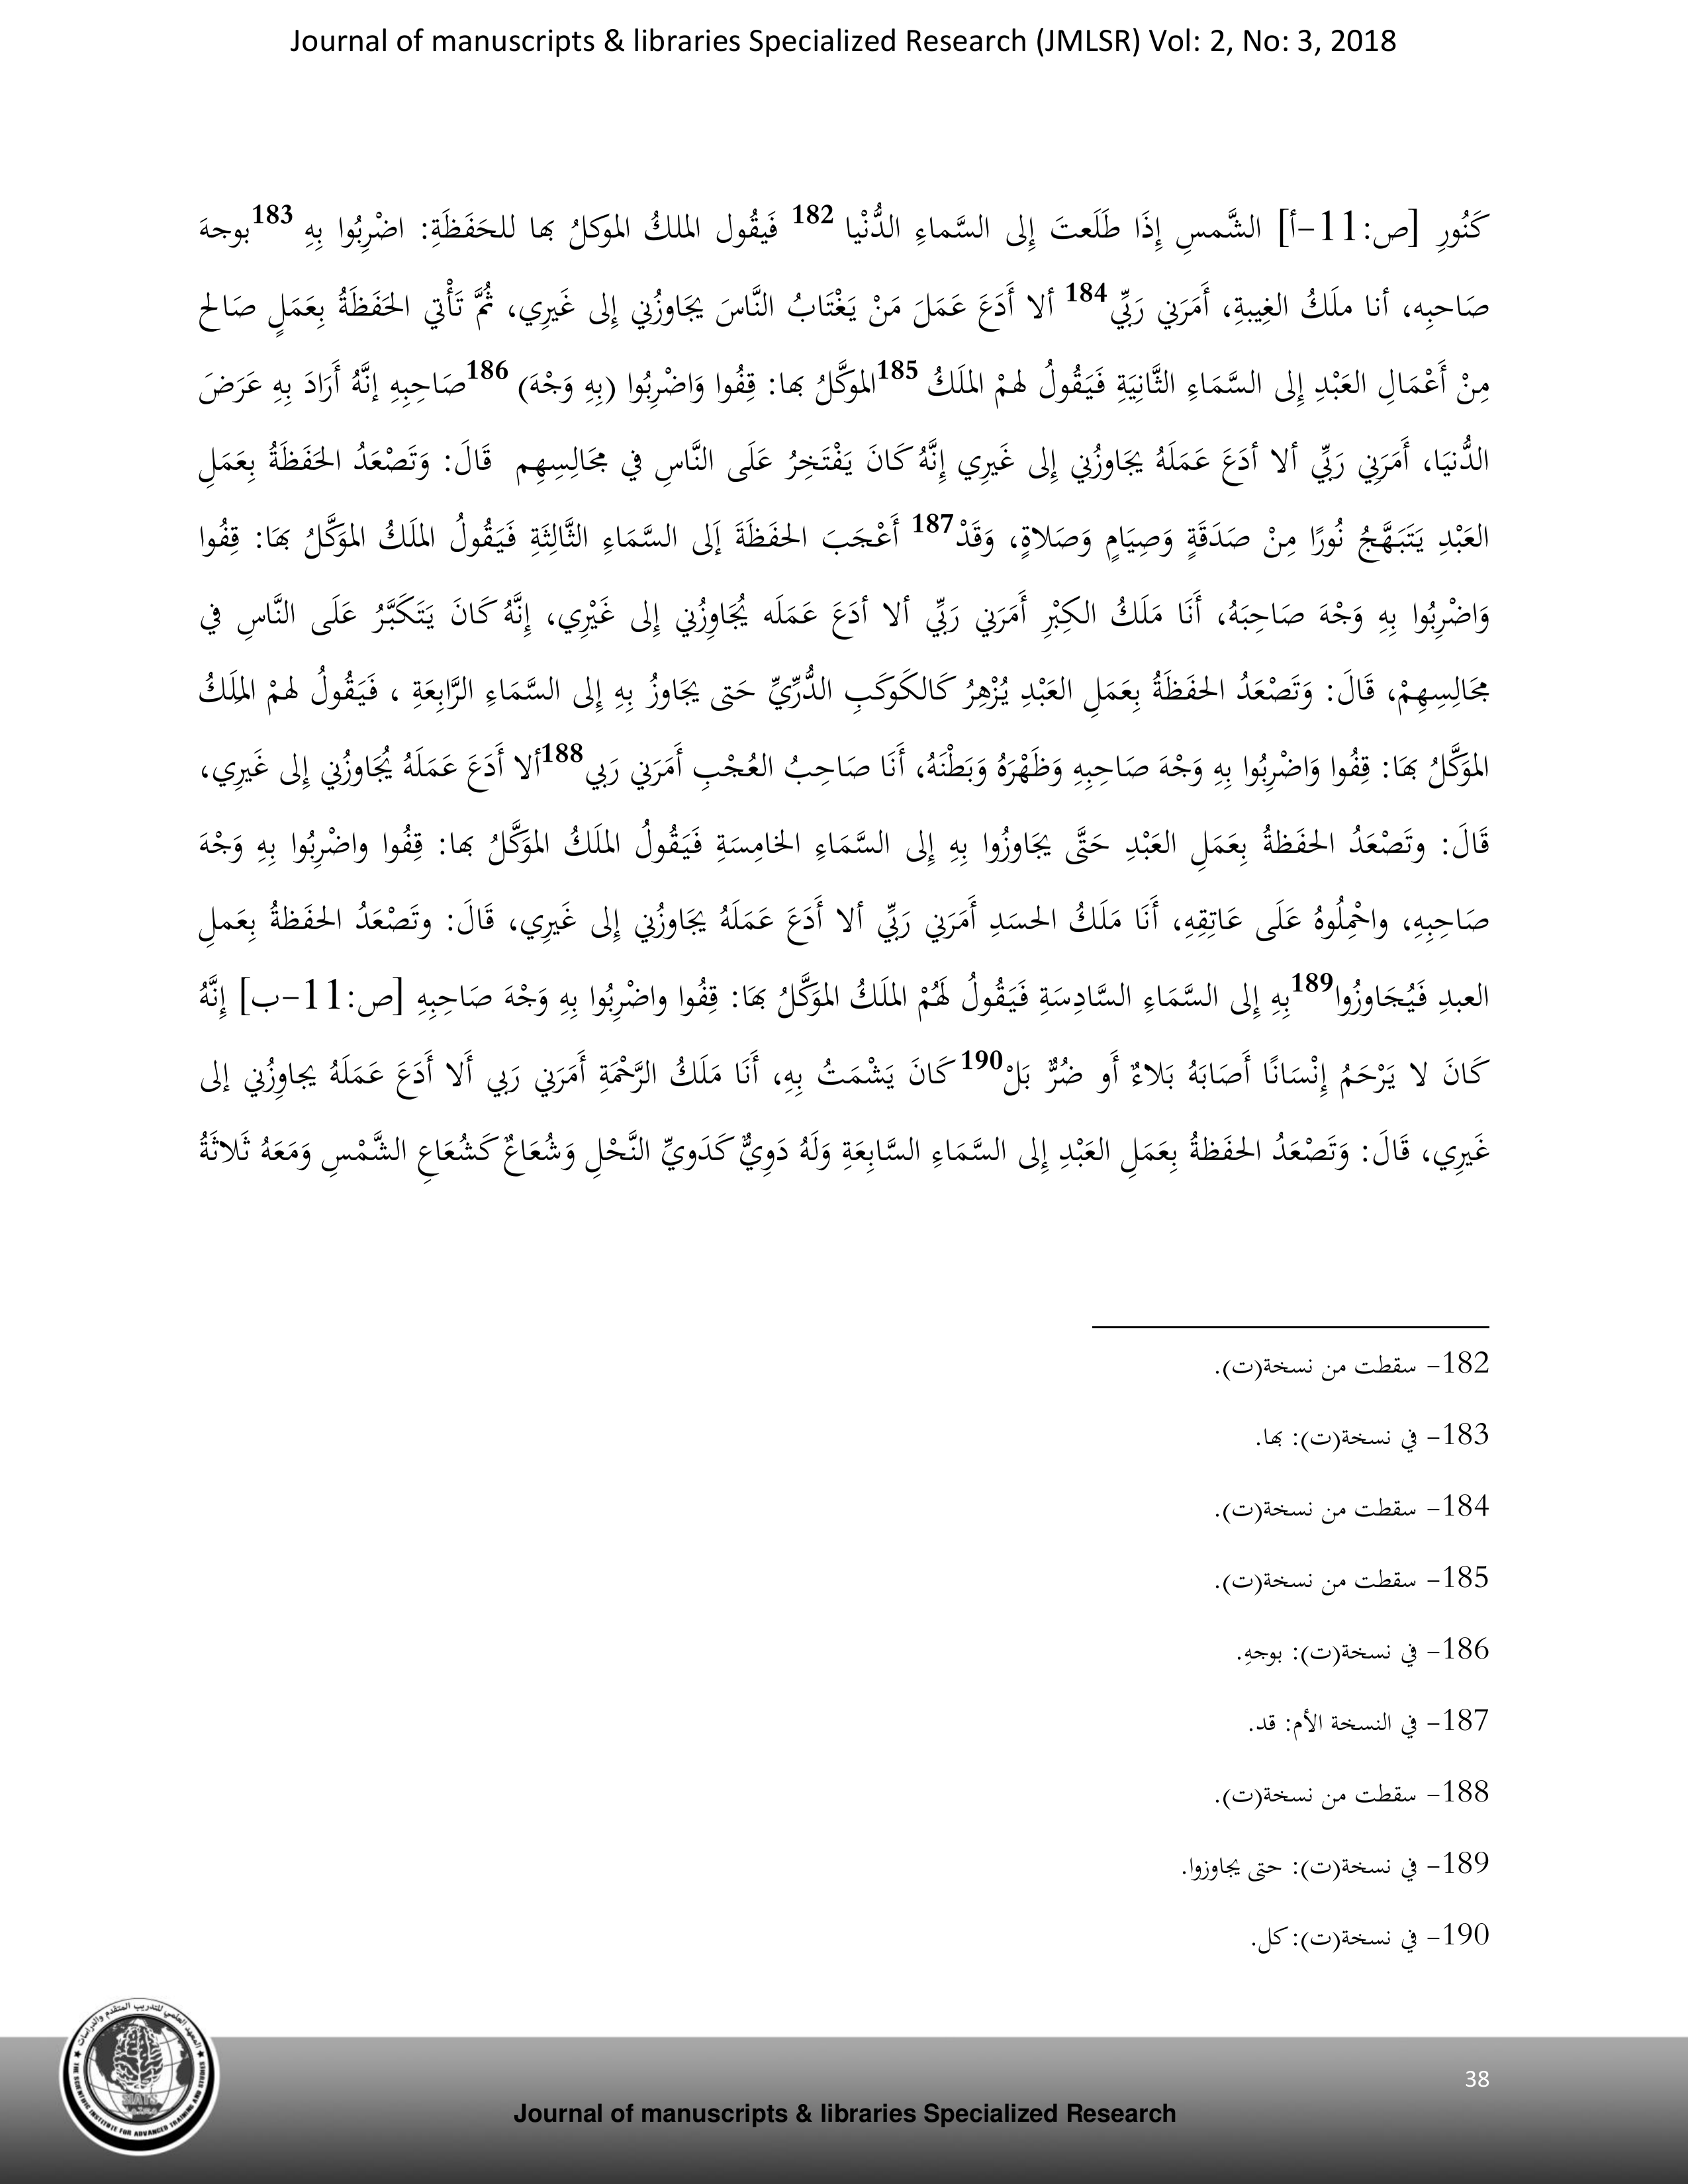 Journal of manuscripts & libraries Specialized Research (JMLSR) Vol: 2, No: 3, 2018
كَنُورِ [ص:11-أ] الشَّمسِ إِذَا طَلَعتَ إِلى السَّماءِ الدُّنْيا 182 فَيَقُول الملكُ الموكلُ بها للحَفَظَةِ: اضْرِبُوا بِهِ 183بوجهَ
صَاحبِه، أنا ملَكُ الغِيبةِ، أَمَرَني رَبِّي184 ألا أَدَعَ عَمَلَ مَنْ يَغْتَابُ النَّاسَ يجَاوزُني إِلى غَيرِي، ثُمَّ تَأْتي الحَفَظَةُ بِعَمَلٍ صَالح
مِنْ أَعْمَالِ العَبْدِ إِلى السَّمَاءِ الثَّانِيَةِ فَيَقُولُ لهمْ الملَكُ 185الموكَّلُ بها: قِفُوا وَاضْرِبُوا (بِهِ وَجْهَ) 186صَاحِبِهِ إنَّهُ أَرَادَ بِهِ عَرَضَ
الدُّنيَا، أَمَرَنِي رَبِّي ألا أدَعَ عَمَلَهُ يجَاوزُني إلى غَيرِي إنَّهُ كَانَ يَفْتَخِرُ عَلَى النَّاسِ في مجَالِسِهِم قَالَ: وَتَصْعَدُ الحَفَظَةُ بِعَمَلِ
العَبْدِ يَتَبَهَّجُ نُورًا مِنْ صَدَقَةٍ وَصِيَامٍ وَصَلاةٍ، وَقَدْ187 أَعْجَبَ الحفَظَةَ إَلى السَّمَاءِ الثَّالِثَةِ فَيَقُولُ الملَكُ الموَكَّلُ بهَا: قِفُوا
وَاضْرِبُوا بِهِ وَجْهَ صَاحِبَهُ، أَنَا مَلَكُ الكِبْرِ أَمَرَني رَبِّي ألا أدَعَ عَمَلَه يُجَاوِزُني إِلى غَيْرِي، إِنَّهُ كَانَ يَتَكَبَّرُ عَلَى النَّاسِ في
مجَالِسِهِمْ، قَالَ: وَتَصْعَدُ الحفَظَةُ بِعَمَلِ العَبْدِ يُزْهِرُ كَالكَوكَبِ الدُّرِّيِّ حَتى يجَاوزُ بِهِ إِلى السَّمَاءِ الرَّابِعَةِ ، فَيَقُولُ لهمْ الملِكُ
الموَكَّلُ بهَا: قِفُوا وَاضْرِبُوا بِهِ وَجْهَ صَاحِبِهِ وَظَهْرَهُ وَبَطْنَهُ، أَنَا صَاحِبُ العُجْبِ أَمَرَني رَبي188ألا أَدَعَ عَمَلَهُ يُجَاوزُني إِلى غَيرِي،
قَالَ: وتَصْعَدُ الحفَظةُ بِعَمَلِ العَبْدِ حَتَّى يجَاوزُوا بِهِ إِلى السَّمَاءِ الخامِسَةِ فَيَقُولُ الملَكُ الموَكَّلُ بها: قِفُوا واضْرِبُوا بِهِ وَجْهَ
صَاحِبِهِ، واحْمِلُوهُ عَلَى عَاتِقِهِ، أَنَا مَلَكُ الحسَدِ أَمَرَني رَبِّي ألا أَدَعَ عَمَلَهُ يجَاوزُني إلى غَيرِي، قَالَ: وتَصْعَدُ الحفَظةُ بِعَملِ
العبدِ فَيُجَاوزُوا189بِهِ إِلى السَّمَاءِ السَّادِسَةِ فَيَقُولُ لَهُمْ الملَكُ الموَكَّلُ بهَا: قِفُوا واضْرِبُوا بِهِ وَجْهَ صَاحِبِهِ [ص:11-ب] إِنَّهُ
كَانَ لا يَرْحَمُ إِنْسَانًا أَصَابَهُ بَلاءٌ أَو ضُرٌّ بَلْ190 كَانَ يَشْمَتُ بِهِ، أَنَا مَلَكُ الرَّحْمَةِ أَمَرَني رَبي أَلا أَدَعَ عَمَلَهُ يجاوِزُني إلى
غَيرِي، قَالَ: وَتَصْعَدُ الحفَظةُ بِعَمَلِ العَبْدِ إِلى السَّمَاءِ السَّابِعَةِ وَلَهُ دَوِيٌّ كَدَويِّ النَّحْلِ وَشُعَاعٌ كَشُعَاعِ الشَّمْسِ وَمَعَهُ ثَلاثَةُ
182- سقطت من نسخة(ت).
183- في نسخة(ت): بها.
184- سقطت من نسخة(ت).
185- سقطت من نسخة(ت).
186- في نسخة(ت): بوجهِ.
187- في النسخة الأم: قد.
188- سقطت من نسخة(ت).
189- في نسخة(ت): حتى يجاوزوا.
190- في نسخة(ت): كل.
المعهد العلمي للتدريب المتقدم والدراسات
SIATS
THE SCIENTIFIC INSTITUTE FOR ADVANCED TRAINING AND STUDIES
38
Journal of manuscripts & libraries Specialized Research